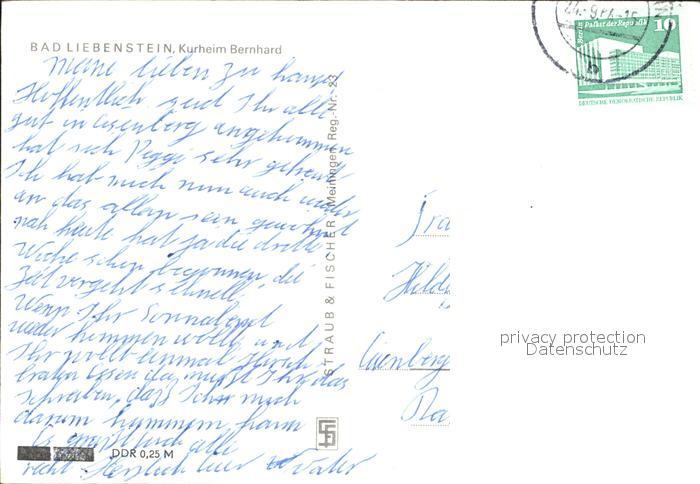 BAD LIEBENSTEIN, Kurheim Bernhard
Meine lieben zu hause
Hoffentlich seid Ihr alle
gut in Eisenberg angekommen
hat sich Peggi sehr gefreut
Ich hab mich nun auch wieder
an das allein sein gewöhnt
nah heute hat ja die dritte
Woche schon begonnen, die
Zeit vergeht schnell,
Wenn Ihr Sonnabend
wieder kommen wollt und
Ihr wollt einmal
braten essen da müsst Ihr das
schreiben, dass ich mich
darum kümmern kann
Es grüßt Euch alle
recht Herzlich Euer Vater
DDR 0,25 M
STRAUB & FISCHER Meiningen Reg.-Nr. 23
Berlin Palast der Republik 10
DEUTSCHE DEMOKRATISCHE REPUBLIK
Fra
Hild
Eisenberg
privacy protection
Datenschutz